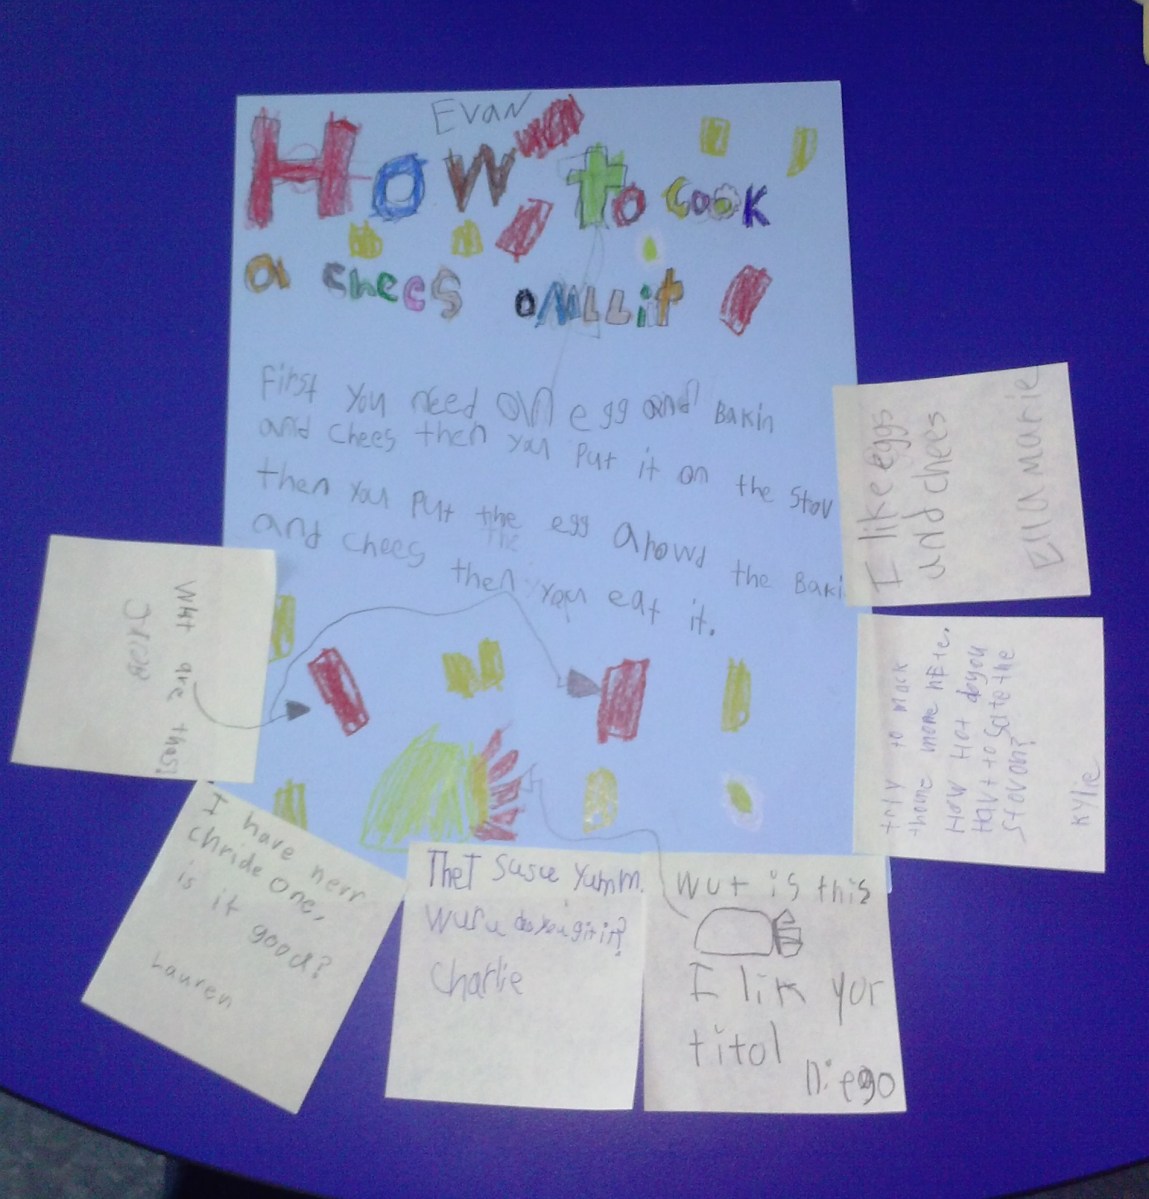 Evan
How to cook
a chees omllit
First you need an egg and Bakin
and chees then you put it on the stov
then you put the egg arowd the Baki
and chees then you eat it.
I like eggs
and chees
Ella marie
try to mack
thome mome
How Hot do you
Havt to
Stovon?
Kylie
Wht are thes?
I have nerr
chride one,
is it good?
Lauren
Thet susu yumm.
wuru do you git it?
Charlie
wut is this
I lik yor
titol
Diego